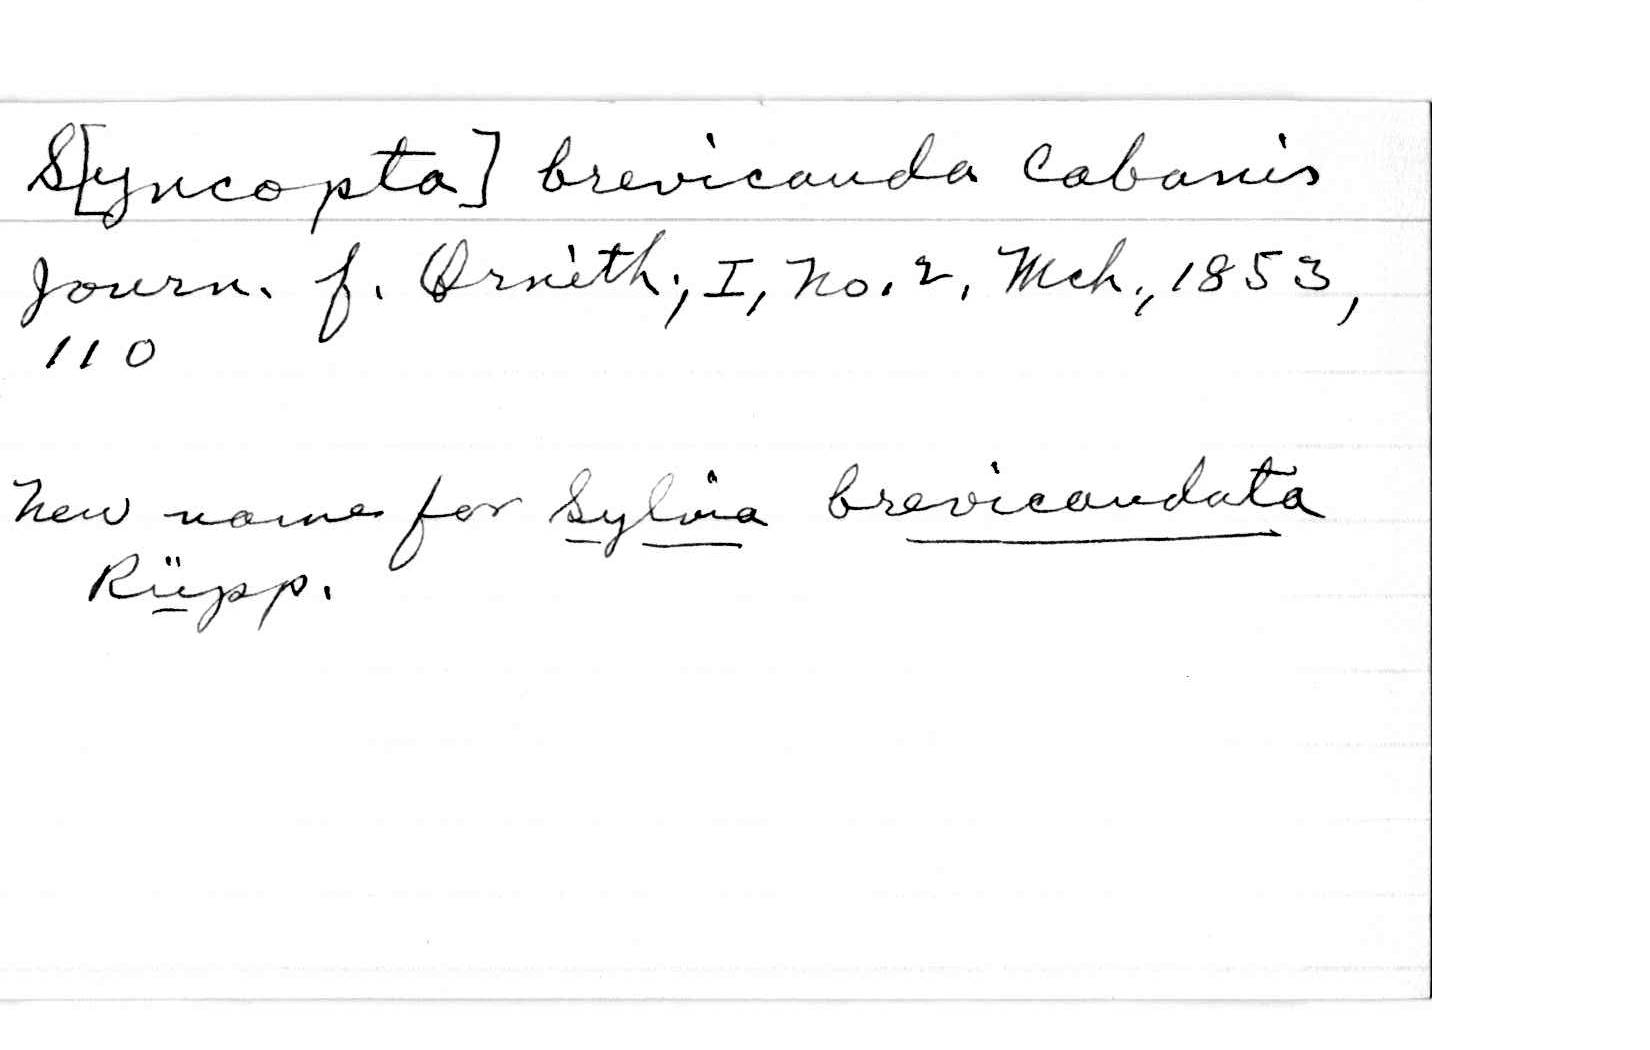 S[yncopta] brevicauda Cabanis
Journ. f. Ornith., I, No. 2, Mch., 1853,
110
New name for Sylvia brevicaudata
Rüpp.